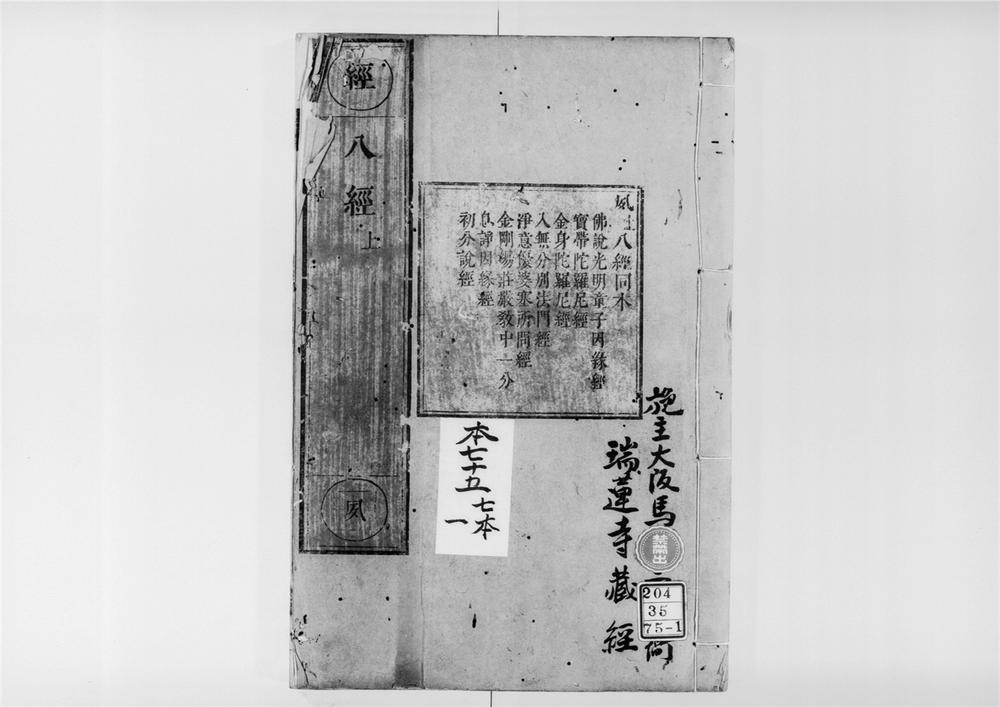 經
八經上
夙
夙 八經同本
佛說光明童子因緣經
寶帶陀羅尼經
金身陀羅尼經
入無分別法門經
淨意優婆塞所問經
金剛場莊嚴教中一分
息諍因緣經
初分說經
施主大阪馬
瑞蓮寺藏經
本七十五
七本
一
禁帶出
204
35
75-1